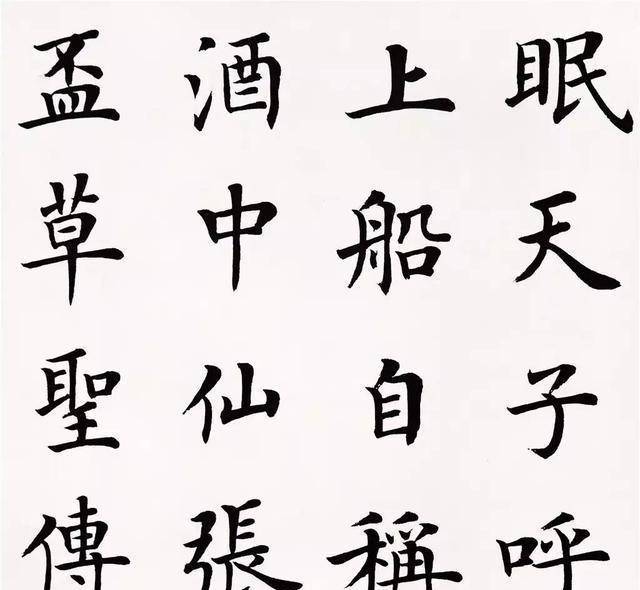 眠天子呼
上船自稱
酒中仙張
盃草聖傳